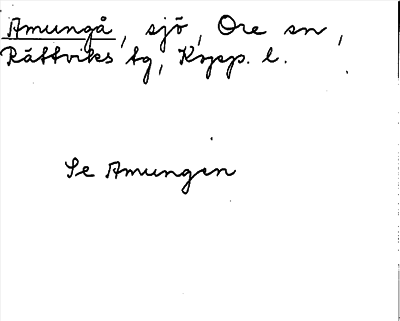 Amungå, sjö, Ore sn,
Rättviks tg, Kopp. l.
Se Amungen